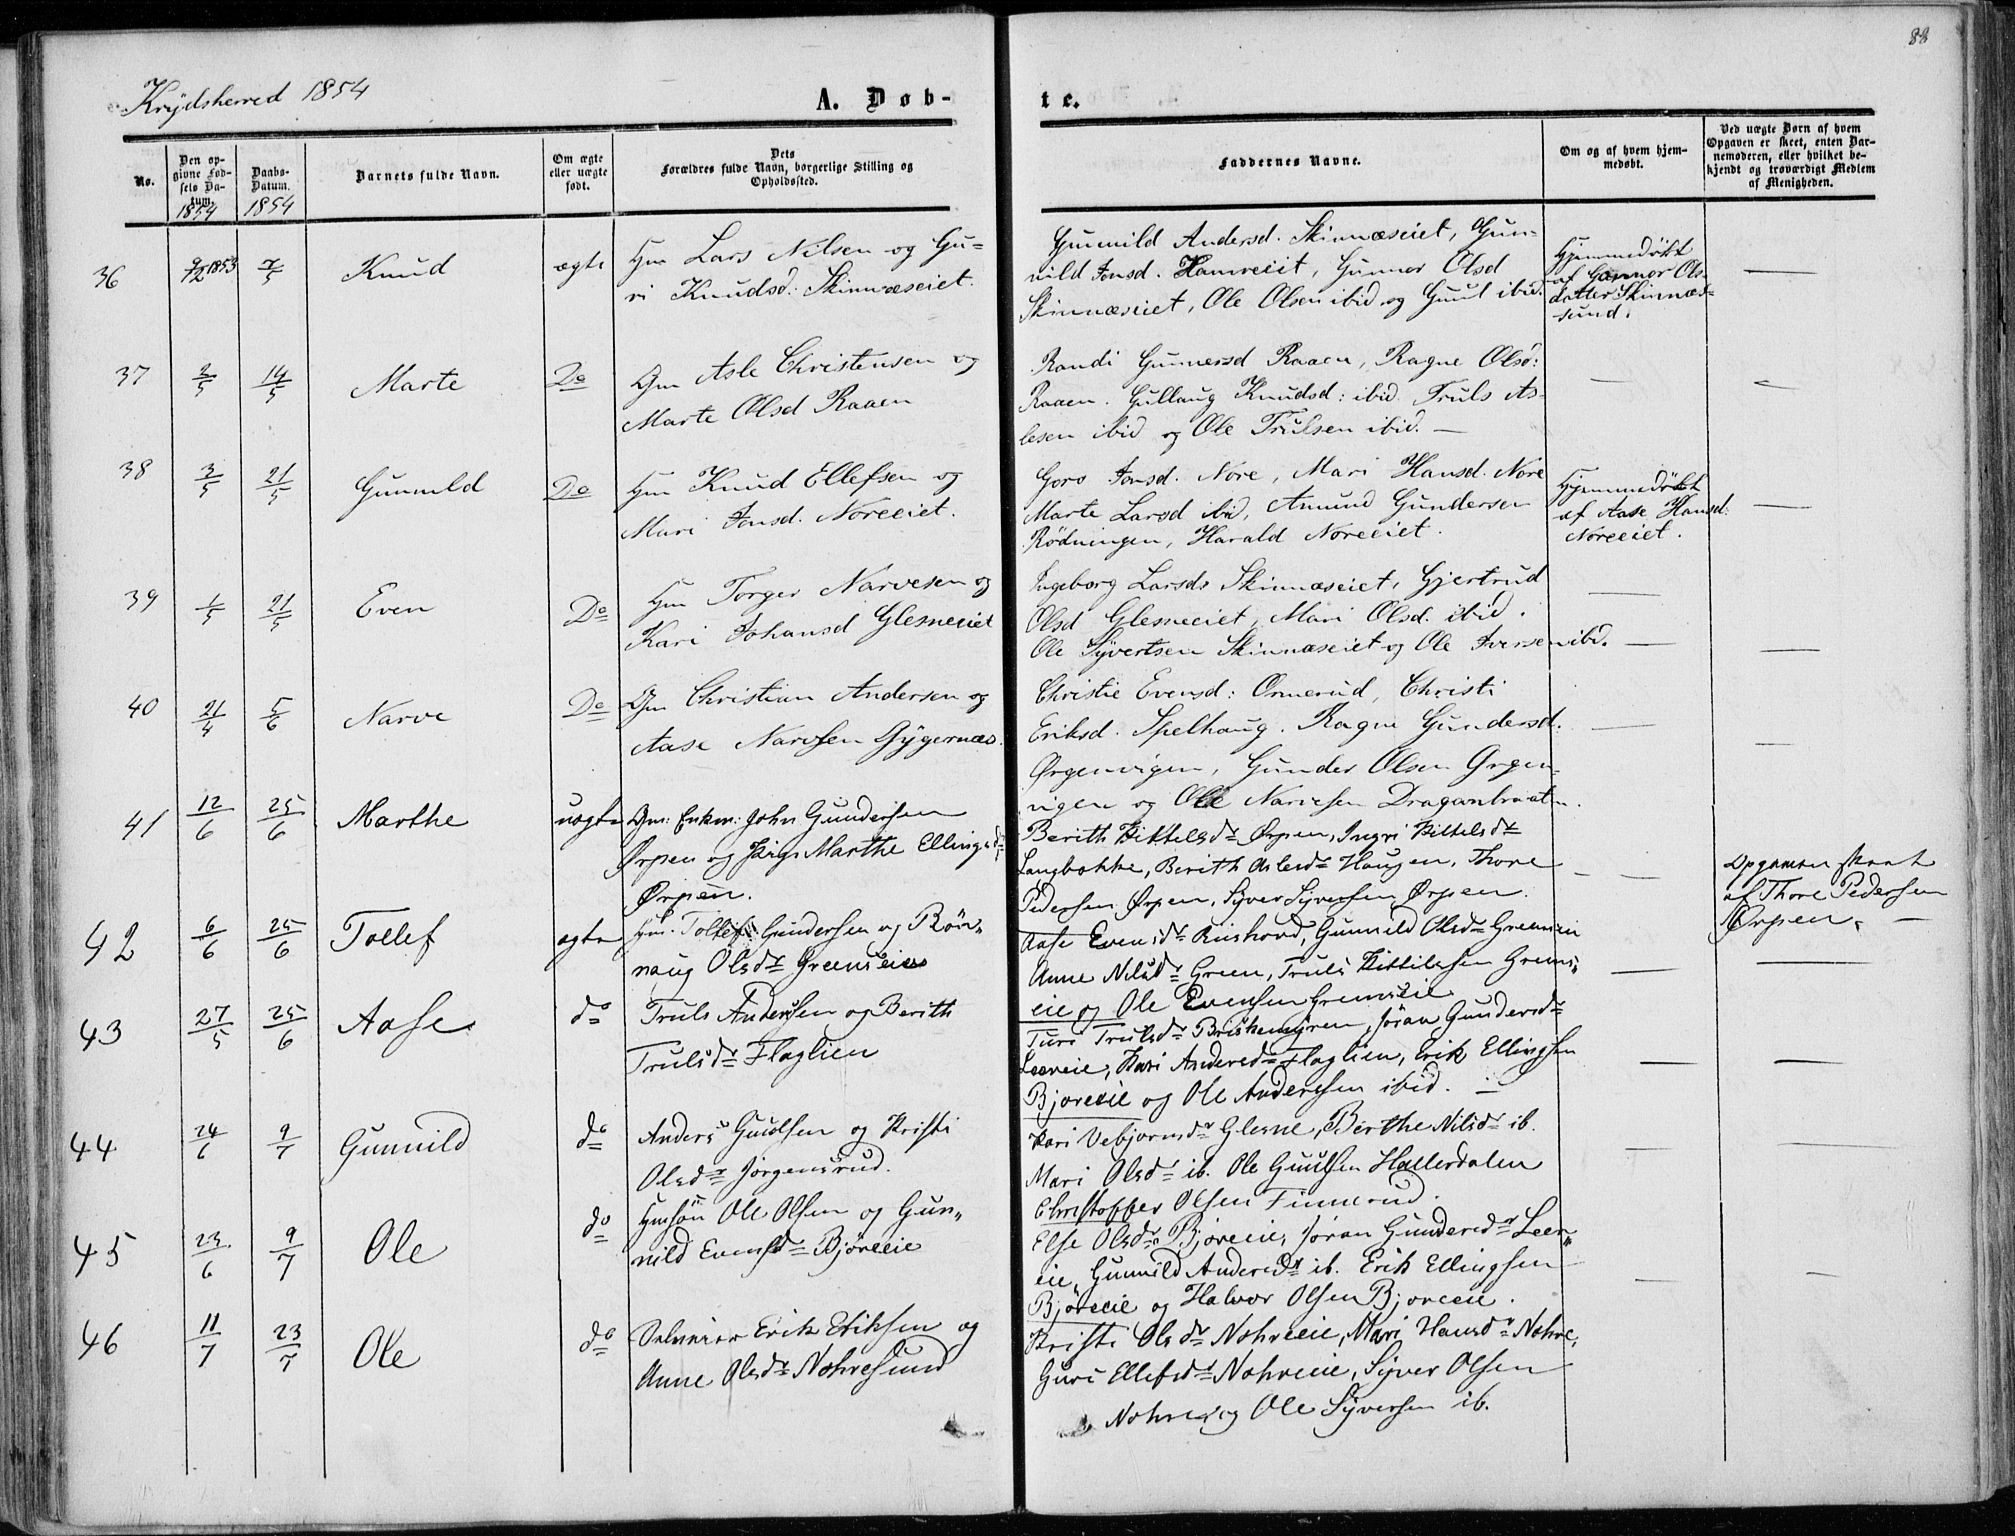 88
Krydsherred 1854
A. Døb-
te.
No.
Den op-
givne Fød-
sels Da-
tum.
1854
Daabs-
Datum.
1854
Barnets fulde Navn.
Om ægte
eller uægte
født.
Dets
Forældres fulde Navn, borgerlige Stilling og
Opholdssted.
Faddernes Navne.
Om og af hvem hjem-
medøbt.
Ved uægte Børn af hvem
Opgaven er skeet, enten Bar-
nemoderen, eller hvilket be-
kjendt og troværdigt Medlem
af Menigheden.
36
9/12 1853
7/5
Knud
ægte
Hm Lars Nilsen og Gu-
ri Knudsd: Skinnæseiet.
Gunnild Andersd. Skinnæseiet, Gun-
nild Jonsd. Hamreeiet, Gunnor Olsd
Skinnæseiet, Ole Olsen ibid og Guul ibid.
Hjemmedøbt
af Gunnor Ols-
datter Skinnæs-
sund.
37
2/5
14/5
Marte
Do
Gm Asle Christensen og
Marte Olsd Raaen
Randi Gunnersd Raaen, Ragne Olsd:
Raaen. Gullaug Knudsd: ibid. Truls As-
lesen ibid og Ole Trulsen ibid. —
38
3/5
21/5
Gunnild
Do
Hm Knud Ellefsen og
Mari Jonsd. Noreeiet.
Goro Jonsd. Nore, Mari Hansd. Nore
Marte Larsd ibid, Amund Gundersen
Rødningen, Harald Noreeiet.
Hjemmedøbt
af Aase Hansd:
Noreeiet.
39
1/5
21/5
Even
Do
Hm Torger Narvesen og
Kari Johansd Glesneeiet
Ingeborg Larsdr Skinnæseiet, Gjertrud
Olsd Glesneeiet, Mari Olsd. ibid.
Ole Syvertsen Skinnæseiet og Ole Iversen ibd.
40
21/4
5/6
Narve
Do
Gm Christian Andersen og
Aase Narvesen Gygernæs.
Christie Evensd: Ormerud, Christi
Eriksd. Spelhaug. Ragne Gundersd.
Ørgenvigen, Gunder Olsen Ørgen-
vigen og Ole Narvesen Draganbraaten.
41
12/6
25/6
Marthe
uægte
Gm: Enkm: John Gundersen
Ørpen og Pige Marthe Ellingsdr
Ørpen.
Berith Kittelsdr Ørpen, Ingri Kittelsdr
Langbakke, Berith Aslesdr Haugen, Thore
Pedersen Ørpen, Syver Syversen Ørpen.
Opgaven skeet
af Thore Pedersen
Ørpen. —
42
6/6
25/6
Tollef
ægte
Hm. Tollef Gundersen og Røn-
naug Olsdr Greenseie
Aase Evensdr Ruishovd, Gunnild Olsdr Greenseie
Anne Nilsdr Green, Truls Kittilsen Grens-
eie og Ole Evensen Grenseie
43
27/5
25/6
Aase
do
Truls Andersen og Berith
Trulsdr Flaglien
Turi Trulsdr Briskemyren, Jøran Gundersdr
Leereie, Kari Andersdr Flaglien, Erik Ellingsen
Bjøreeie og Ole Andersen ibid. —
44
24/6
9/7
Gunnild
do
Anders Guulsen og Kristi
Olsdr Jørgensrud.
Kari Vebjørnsdr Glesne, Berthe Nilsdr ib.
Mari Olsdr ib. Ole Guulsen Hallerdalen
Christoffer Olsen Finnerud.
45
23/6
9/7
Ole
do
Hmsøn Ole Olsen og Gun-
nild Evensdr Bjøreeie
Else Olsdr Bjøreeie, Jøran Gundersdr Leer-
eie, Gunnild Andersdr ib. Erik Ellingsen
Bjøreeie og Halvor Olsen Bjøreeie.
46
11/7
23/7
Ole
do
Selveier Erik Eriksen og
Anne Olsdr Nohresund
Kristi Olsdr Nohreeie, Mari Hansdr Nohre,
Guri Ellefsdr Nohreeie, Syver Olsen
Nohre og Ole Syversen ib.